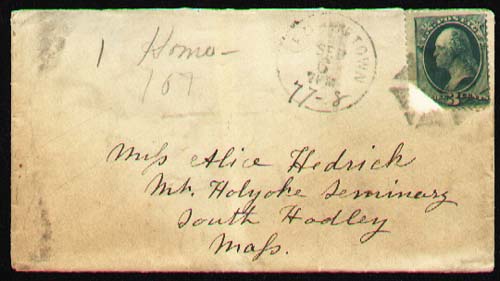 1 Home
767
TOWN
SEP
77-8
3 CENTS
Miss Alice Hedrick
Mt. Holyoke Seminary
South Hadley
Mass.